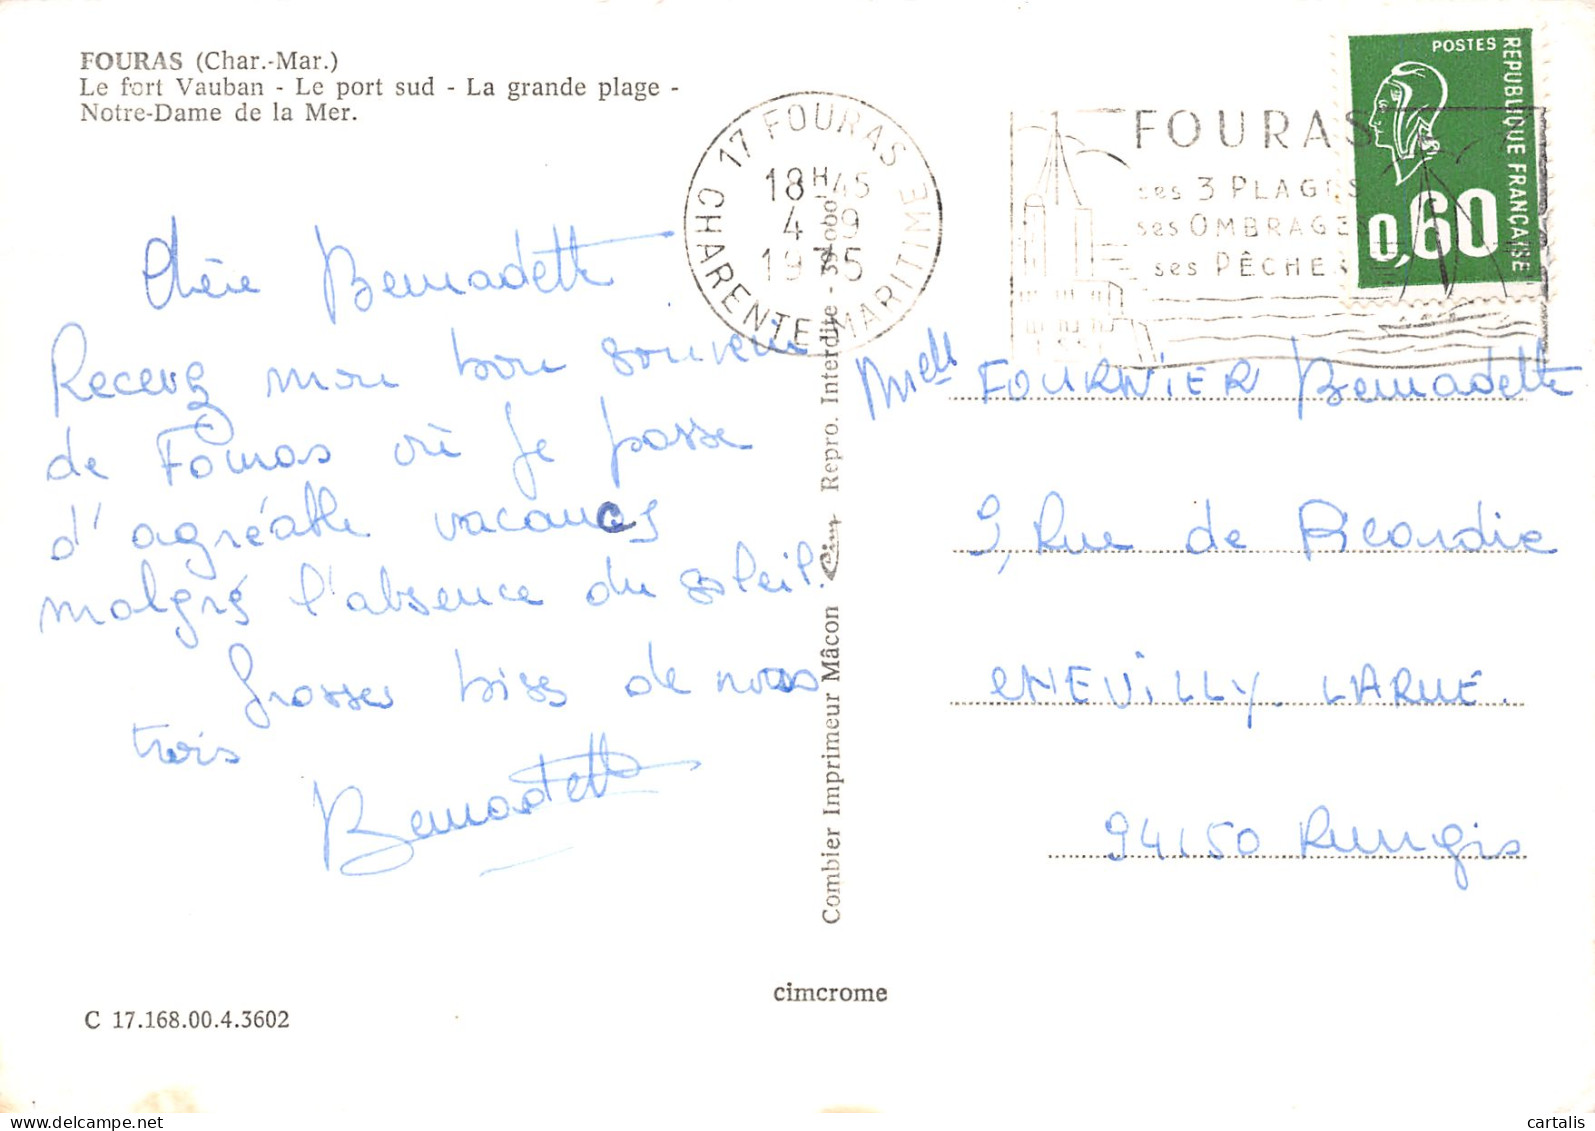 FOURAS (Char.-Mar.)
Le fort Vauban - Le port sud - La grande plage -
Notre-Dame de la Mer.
17 FOURAS
18H45
4-9
1975
CHARENTE MARITIME
FOURAS
ses 3 PLAGES
ses OMBRAGES
ses PÊCHES
POSTES
REPUBLIQUE FRANÇAISE
0,60
Chère Bernadette
Recevez mon bon souvenir
de Fouras où je passe
d'agréable vacances
malgré l'absence du soleil.
Grosses bises de nous
trois
Bernadette
Combier Imprimeur Mâcon Cim Repro. Interdite - 39.000
Melle FOURNIER Bernadette
9, Rue de Picardie
CHEVILLY. LARUE.
94150 Rungis
cimcrome
C 17.168.00.4.3602
cartalis